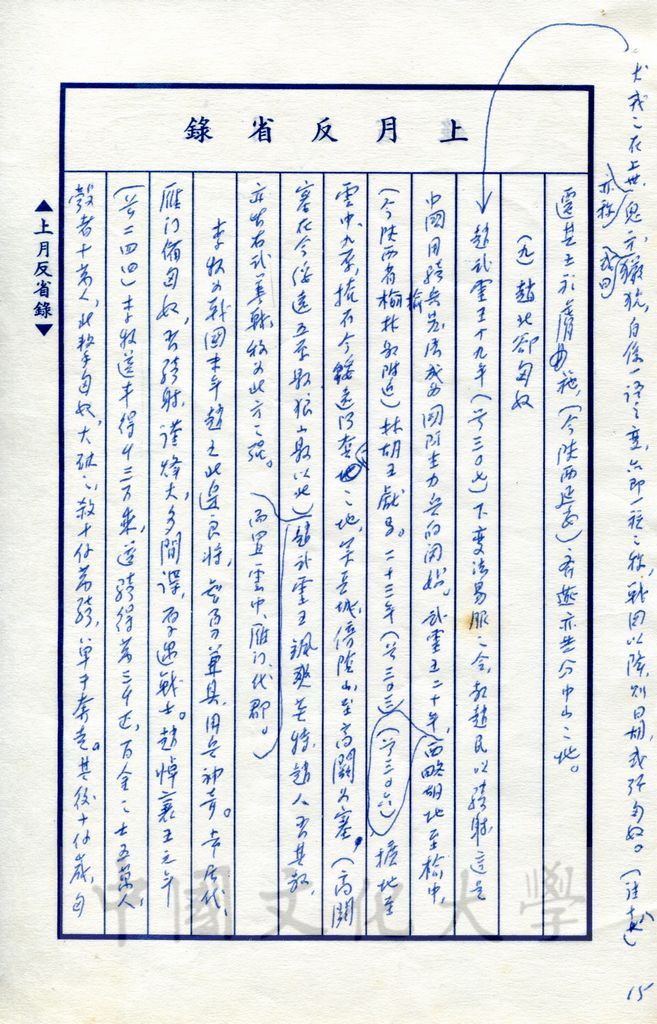 上月反省錄
犬戎之在上世,鬼方,獫狁,自係一語之變,亦即一種之稱,戰國以降,則曰胡,或강匈奴。(註十八)
亦稱
或曰
遷其王於膚施,(今陝西延安)齊燕亦共分中山之地。
(九)趙北卻匈奴
趙武靈王十九年(前三〇七)下變法易服之令,教趙民以騎射,這是
中國用騎兵戰法成為國防主力兵的開始。武靈王二十年,西略胡地至榆中,
(今陝西省榆林縣附近)林胡王獻馬。二十三年(前三〇三)(前三〇六)擴地至
雲中、九原,擁有今綏遠河套之地,築長城,傍陰山,至高闕為塞,(高闕
塞在今綏遠五原縣狼山縣以北)趙武靈王颯爽英特,趙人
亦皆右武善戰,故為北方之強。而置雲中、雁門、代郡。
李牧為戰國末年趙之北邊良將,智勇兼具,用兵神奇。常居代、
雁門備匈奴,習騎射,謹烽火,多間諜,厚遇戰士。趙悼襄王元年
(前二四四)李牧選車得千三百乘,選騎得萬三千匹,百金之士五萬人,
彀者十萬人,此擊匈奴,大破之,殺十餘萬騎,單于奔走。其後十餘歲,匈
▲上月反省錄▼
15
中國文化大學